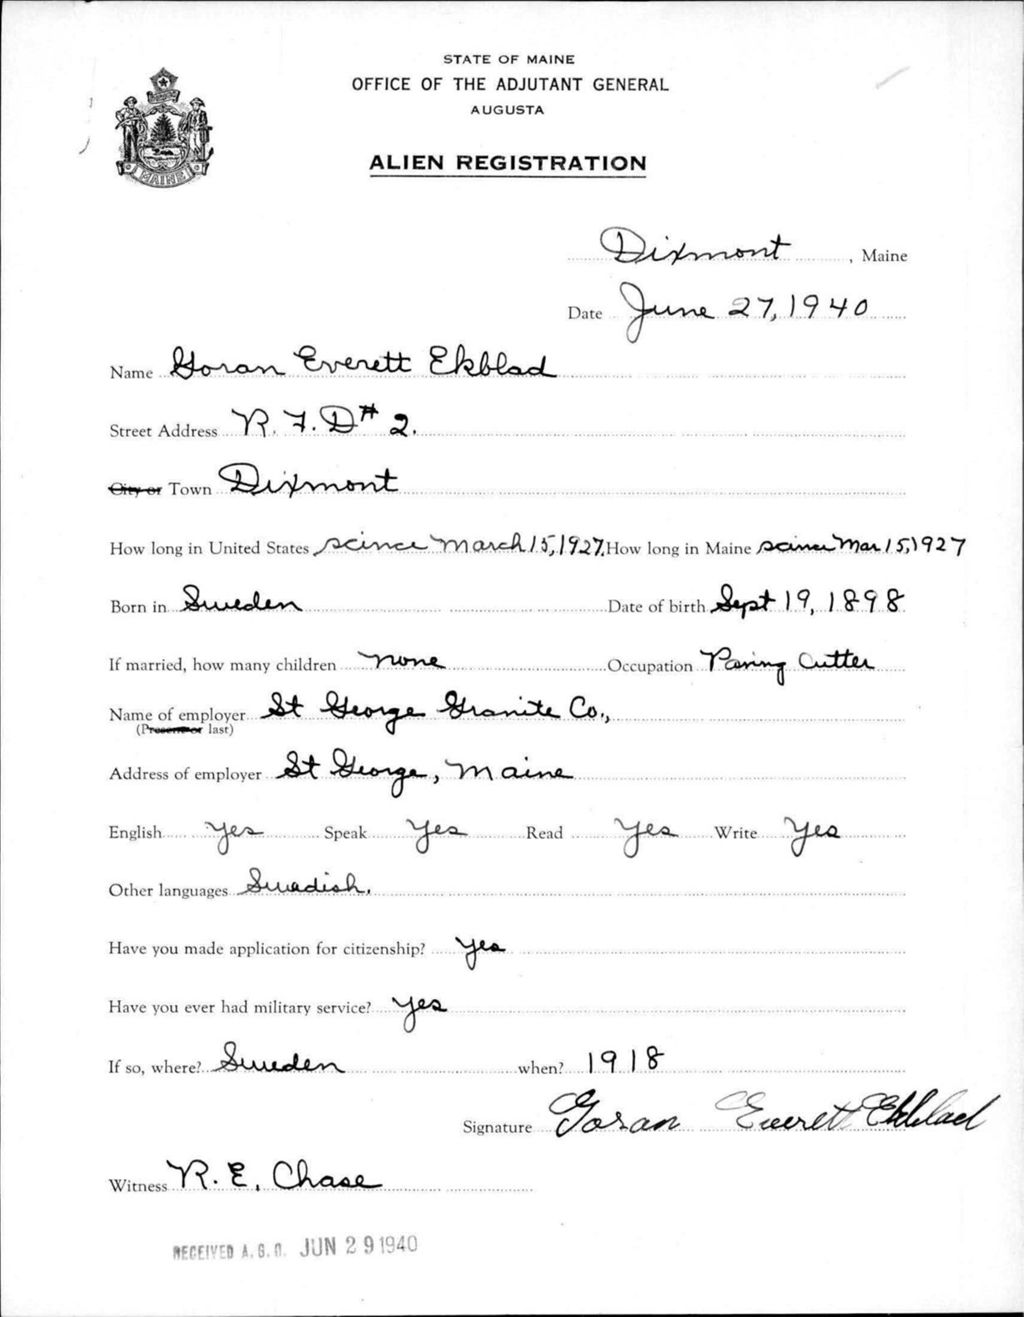 STATE OF MAINE
OFFICE OF THE ADJUTANT GENERAL
AUGUSTA
ALIEN REGISTRATION
MAINE
Dixmont, Maine
Date June 27, 1940
Name Goran Everett Ekblad
Street Address R. F. D # 2.
City or Town Dixmont
How long in United States scince March 15, 1927. How long in Maine scince Mar 15, 1927
Born in Sweden Date of birth Sept 19, 1898
If married, how many children none Occupation Paving Cutter
Name of employer St George Granite Co.,
(Present or last)
Address of employer St George, Maine
English Yes Speak Yes Read Yes Write Yes
Other languages Swadish.
Have you made application for citizenship? Yes
Have you ever had military service? Yes
If so, where? Sweden when? 1918
Signature Goran Everett Ekblad
Witness R. E. Chase
RECEIVED A.G.O. JUN 29 1940